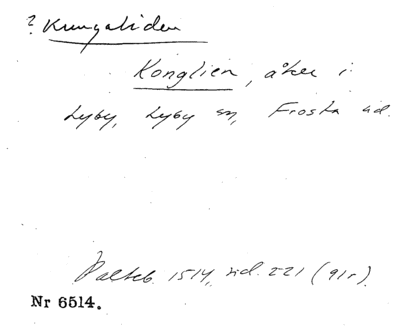 ? Kungaliden
Konglien, åker i
Lyby, Lyby sn, Frosta hd.
Palteb. 1514, sid. 221 (91r).
Nr 6514.